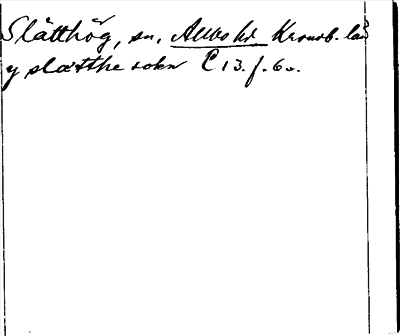 Slätthög, sn, Allbo hd Kronob. län
y slætthe sokn C 13. f. 6v.